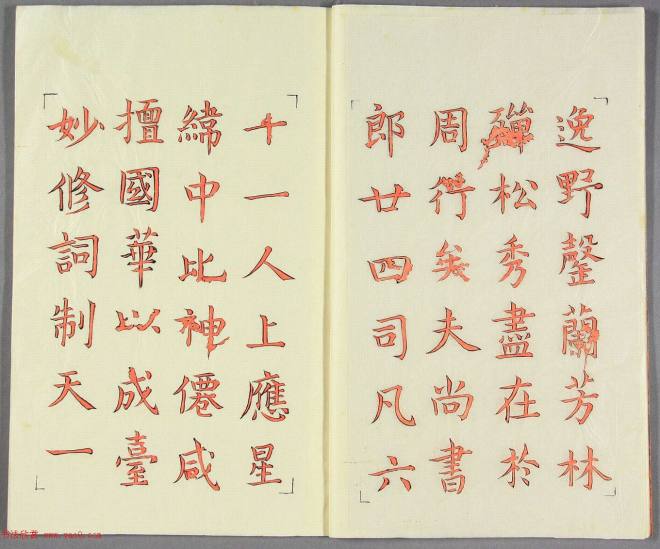 逸野罄蘭芳林
殫松秀盡在於
周行矣夫尚書
郎廿四司凡六
十一人上應星
緯中比神僊咸
擅國華以成臺
妙修詞制天一
书法欣赏 www.yac8.com